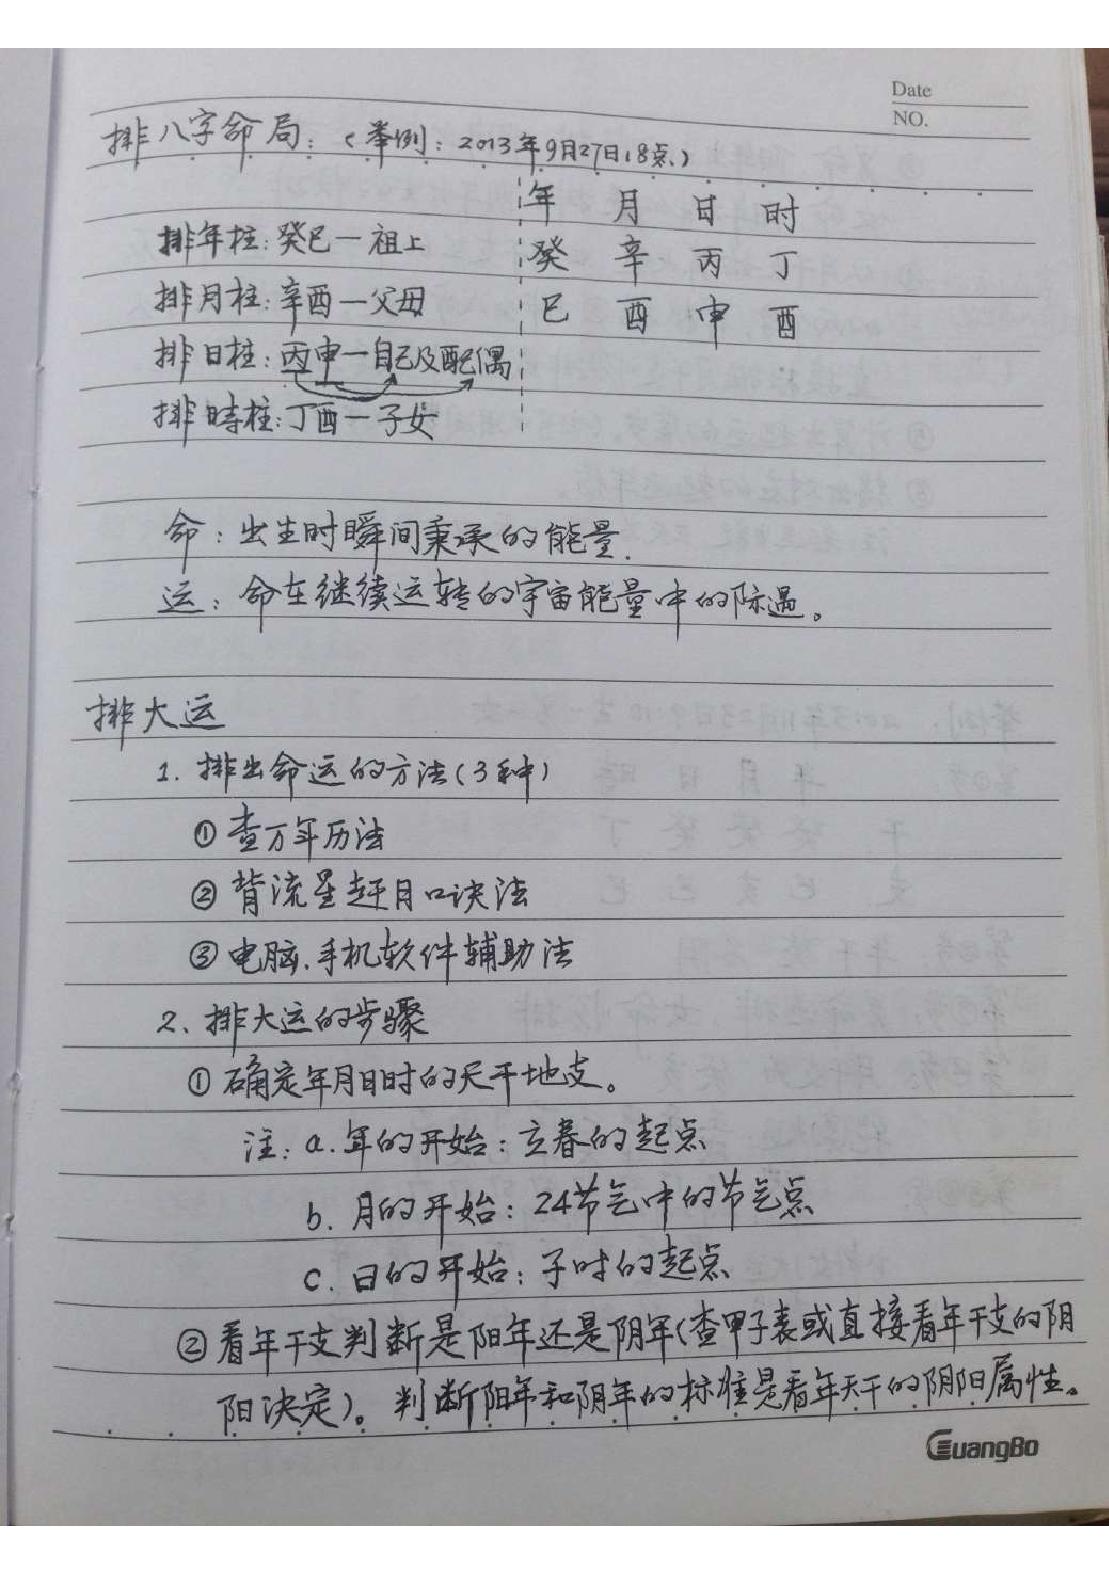 Date
NO.
排八字命局：（举例：2013年9月27日18点）
年 月 日 时
排年柱：癸巳一祖上
癸 辛 丙 丁
排月柱：辛酉一父母
巳 酉 申 酉
排日柱：丙申一自己及配偶
排時柱：丁酉一子女
命：出生时瞬间秉承的能量.
运：命在继续运转的宇宙能量中的际遇。
排大运
1. 排出命运的方法（3种）
① 查万年历法
② 背流星赶月口诀法
③ 电脑、手机软件辅助法
2、排大运的步骤
① 确定年月日时的天干地支。
注：a. 年的开始：立春的起点
b. 月的开始：24节气中的节气点
c. 日的开始：子时的起点
② 看年干支判断是阳年还是阴年（查甲子表或直接看年干支的阴
阳决定）。判断阳年和阴年的标准是看年天干的阴阳属性。
GuangBo